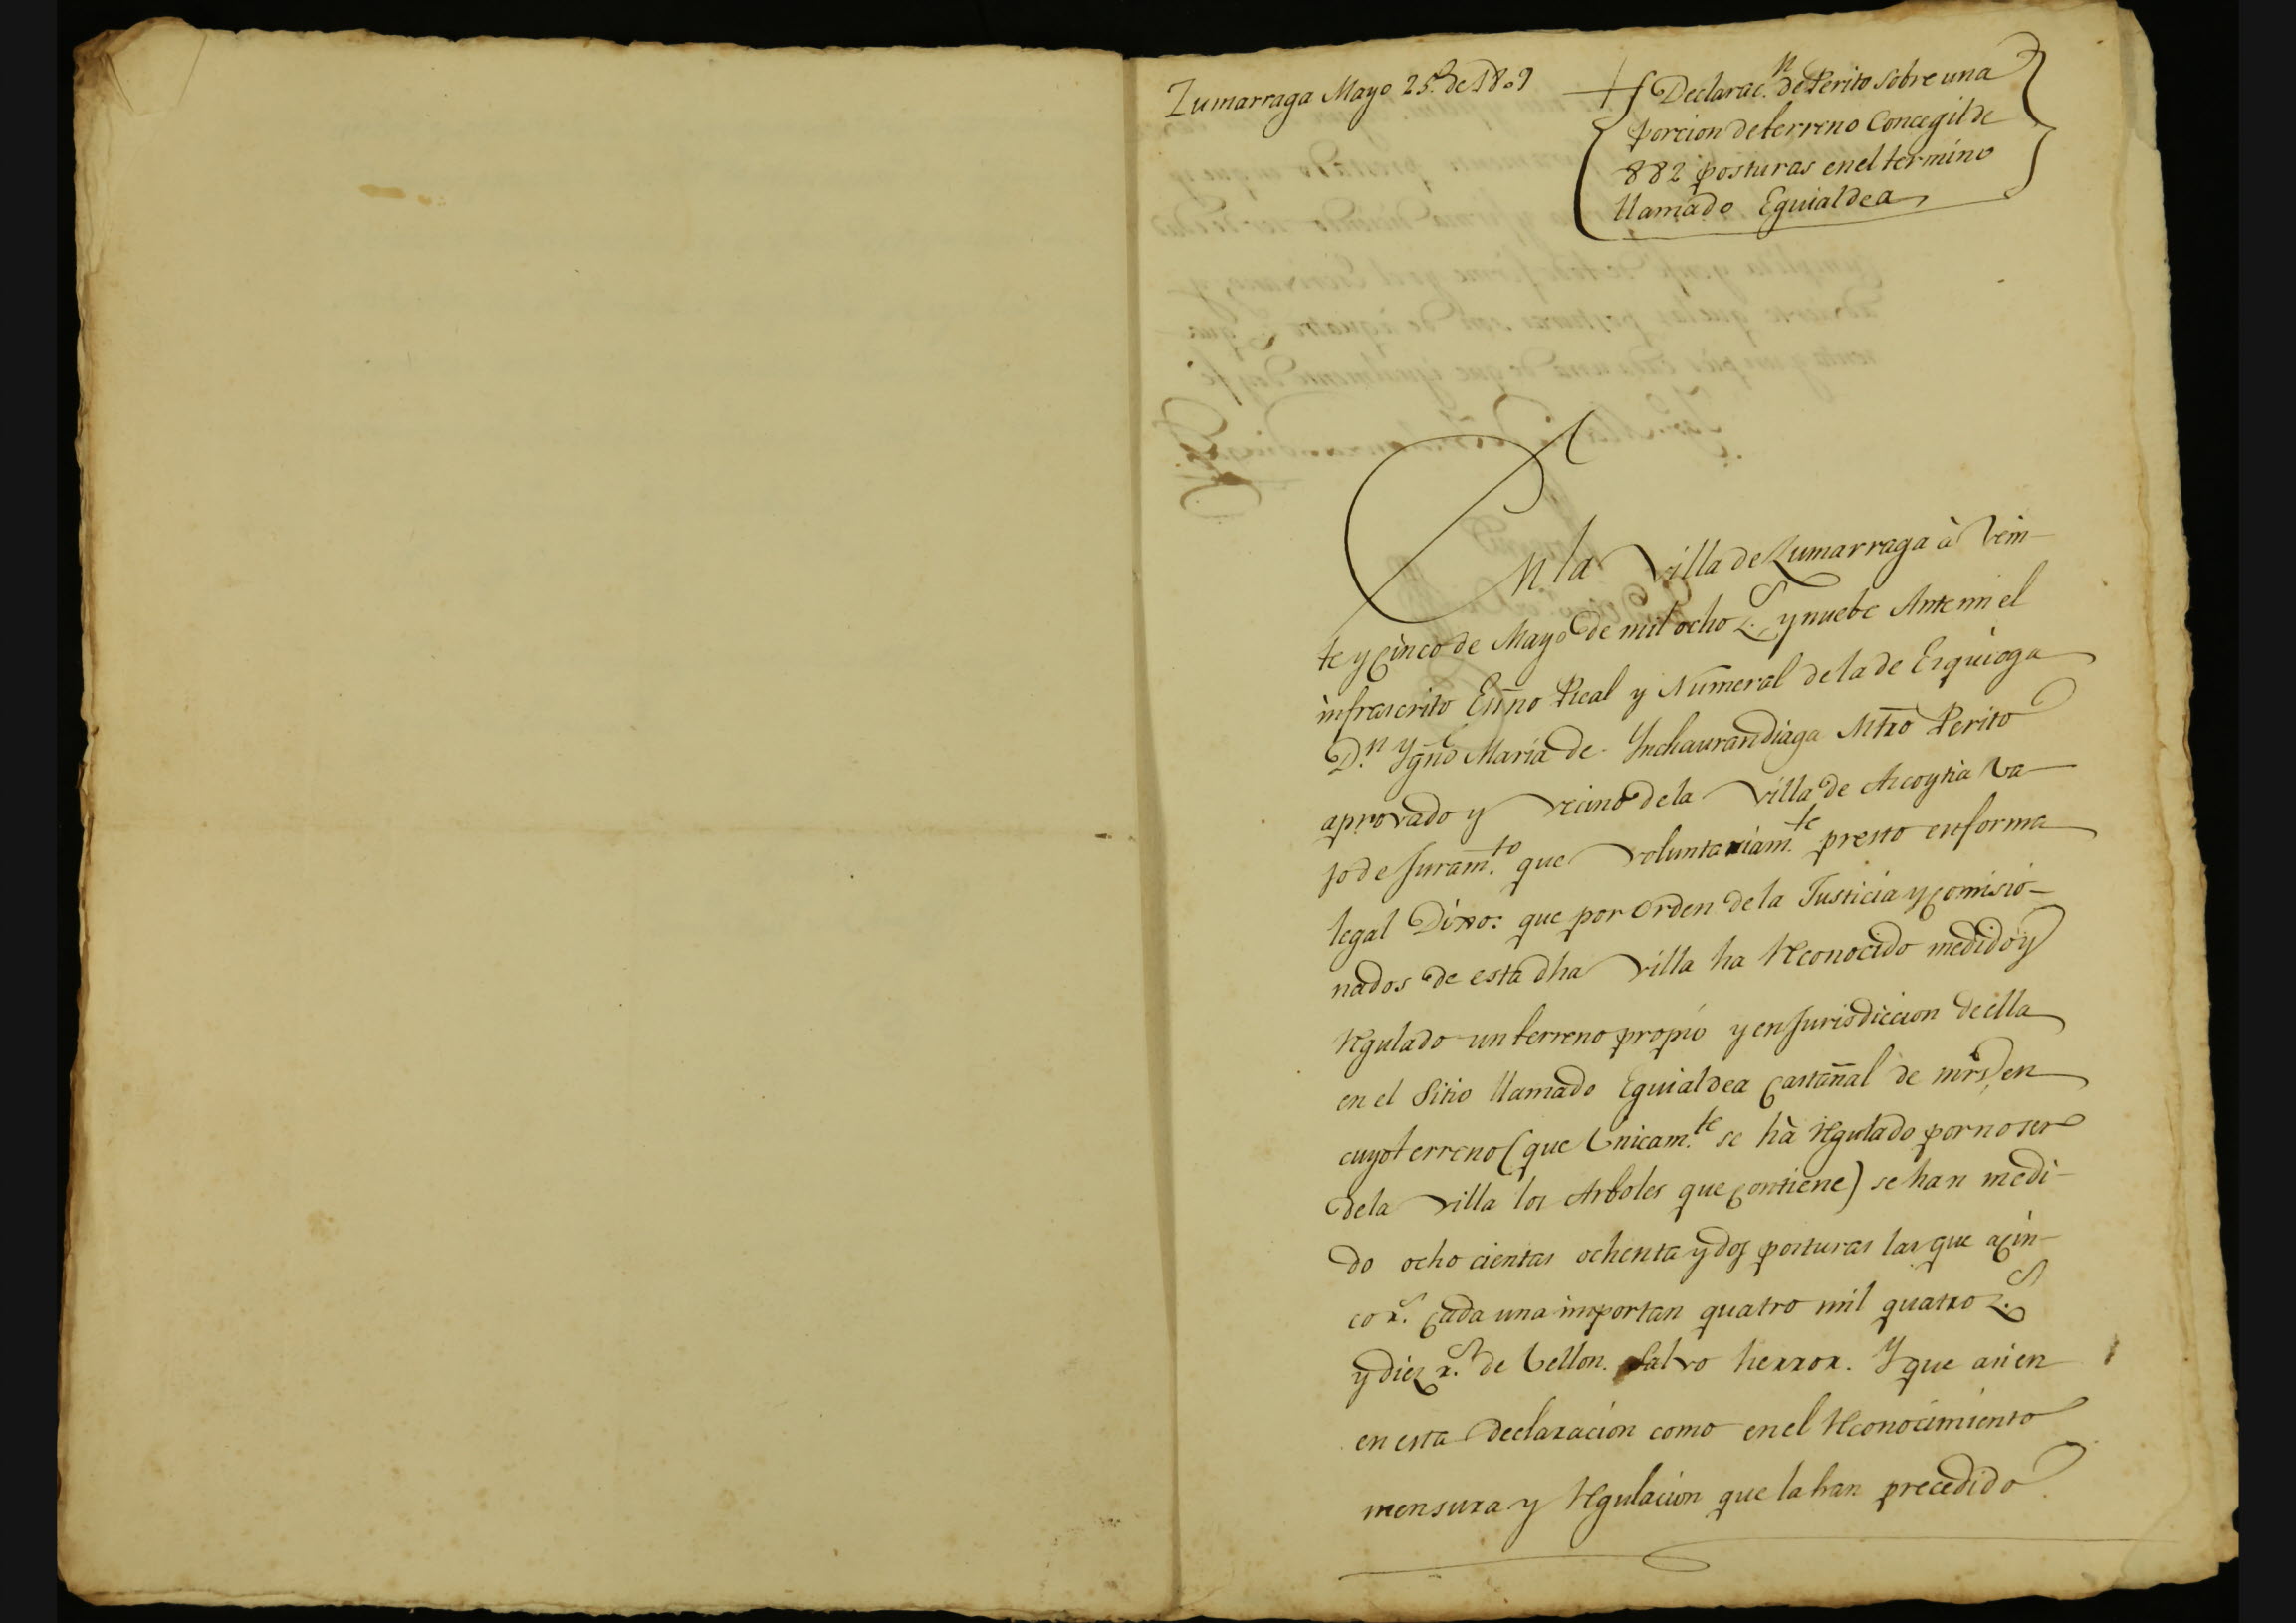 Zumarraga Mayo 25. de 1809
Declarac.n de Perito sobre una
porcion de terreno Concegil de
882 posturas en el termino
llamado Eguialdea
En la Villa de Zumarraga à Vein-
te y Cinco de Mayo de mil ocho z.s y nuebe Ante mi el
infrascrito Essno Real y Numeral de la de Ezquioga
D.n Ygnō Maria de Ynchaurandiaga Mtrō Perito
aprovado y vecino de la villa de Azcoytia va-
jo de Juram.to que voluntariam.te presto en forma
legal Dixo: que por orden de la Justicia y Comisio-
nados de esta dha villa ha Reconocido medido y
Regulado un terreno propio y en Jurisdiccion de ella
en el Sitio llamado Eguialdea Castañal de mrs, en
cuyo terreno (que Unicam.te se hà Regulado por no ser
de la villa los Arboles que contiene) se han medi-
do ocho cientas ochenta y dos posturas las que a cin-
co r.s Cada una importan quatro mil quatro z.s
y diez r.s de Vellon. Salvo herror. Y que asi en
en esta declaracion como en el Reconocimiento
mensura y Regulacion que la han precedido